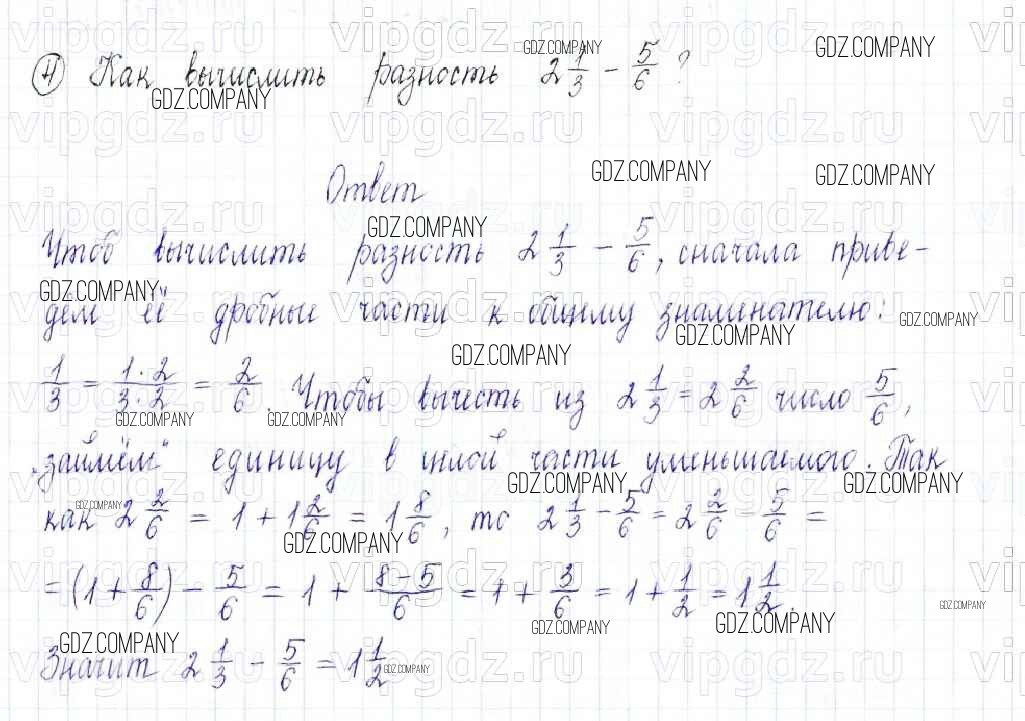 ④ Как вычислить разность 2 1/3 − 5/6 ?
Ответ
Чтоб вычислить разность 2 1/3 − 5/6, сначала приве-
дем её дробные части к общему знаменателю:
1/3 = 1·2/3·2 = 2/6. Чтобы вычесть из 2 1/3 = 2 2/6 число 5/6,
„займём“ единицу в целой части уменьшаемого. Так
как 2 2/6 = 1 + 1 2/6 = 1 8/6, то 2 1/3 − 5/6 = 2 2/6 − 5/6 =
= (1 + 8/6) − 5/6 = 1 + 8−5/6 = 1 + 3/6 = 1 + 1/2 = 1 1/2.
Значит 2 1/3 − 5/6 = 1 1/2
GDZ.COMPANY
vipgdz.ru